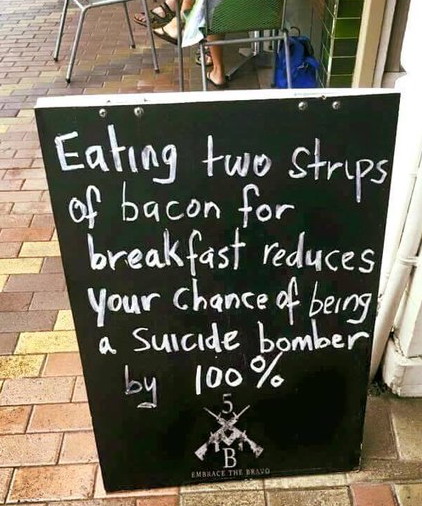 Eating two strips
of bacon for
breakfast reduces
your chance of being
a suicide bomber
by 100%
5
B
EMBRACE THE BRAVO